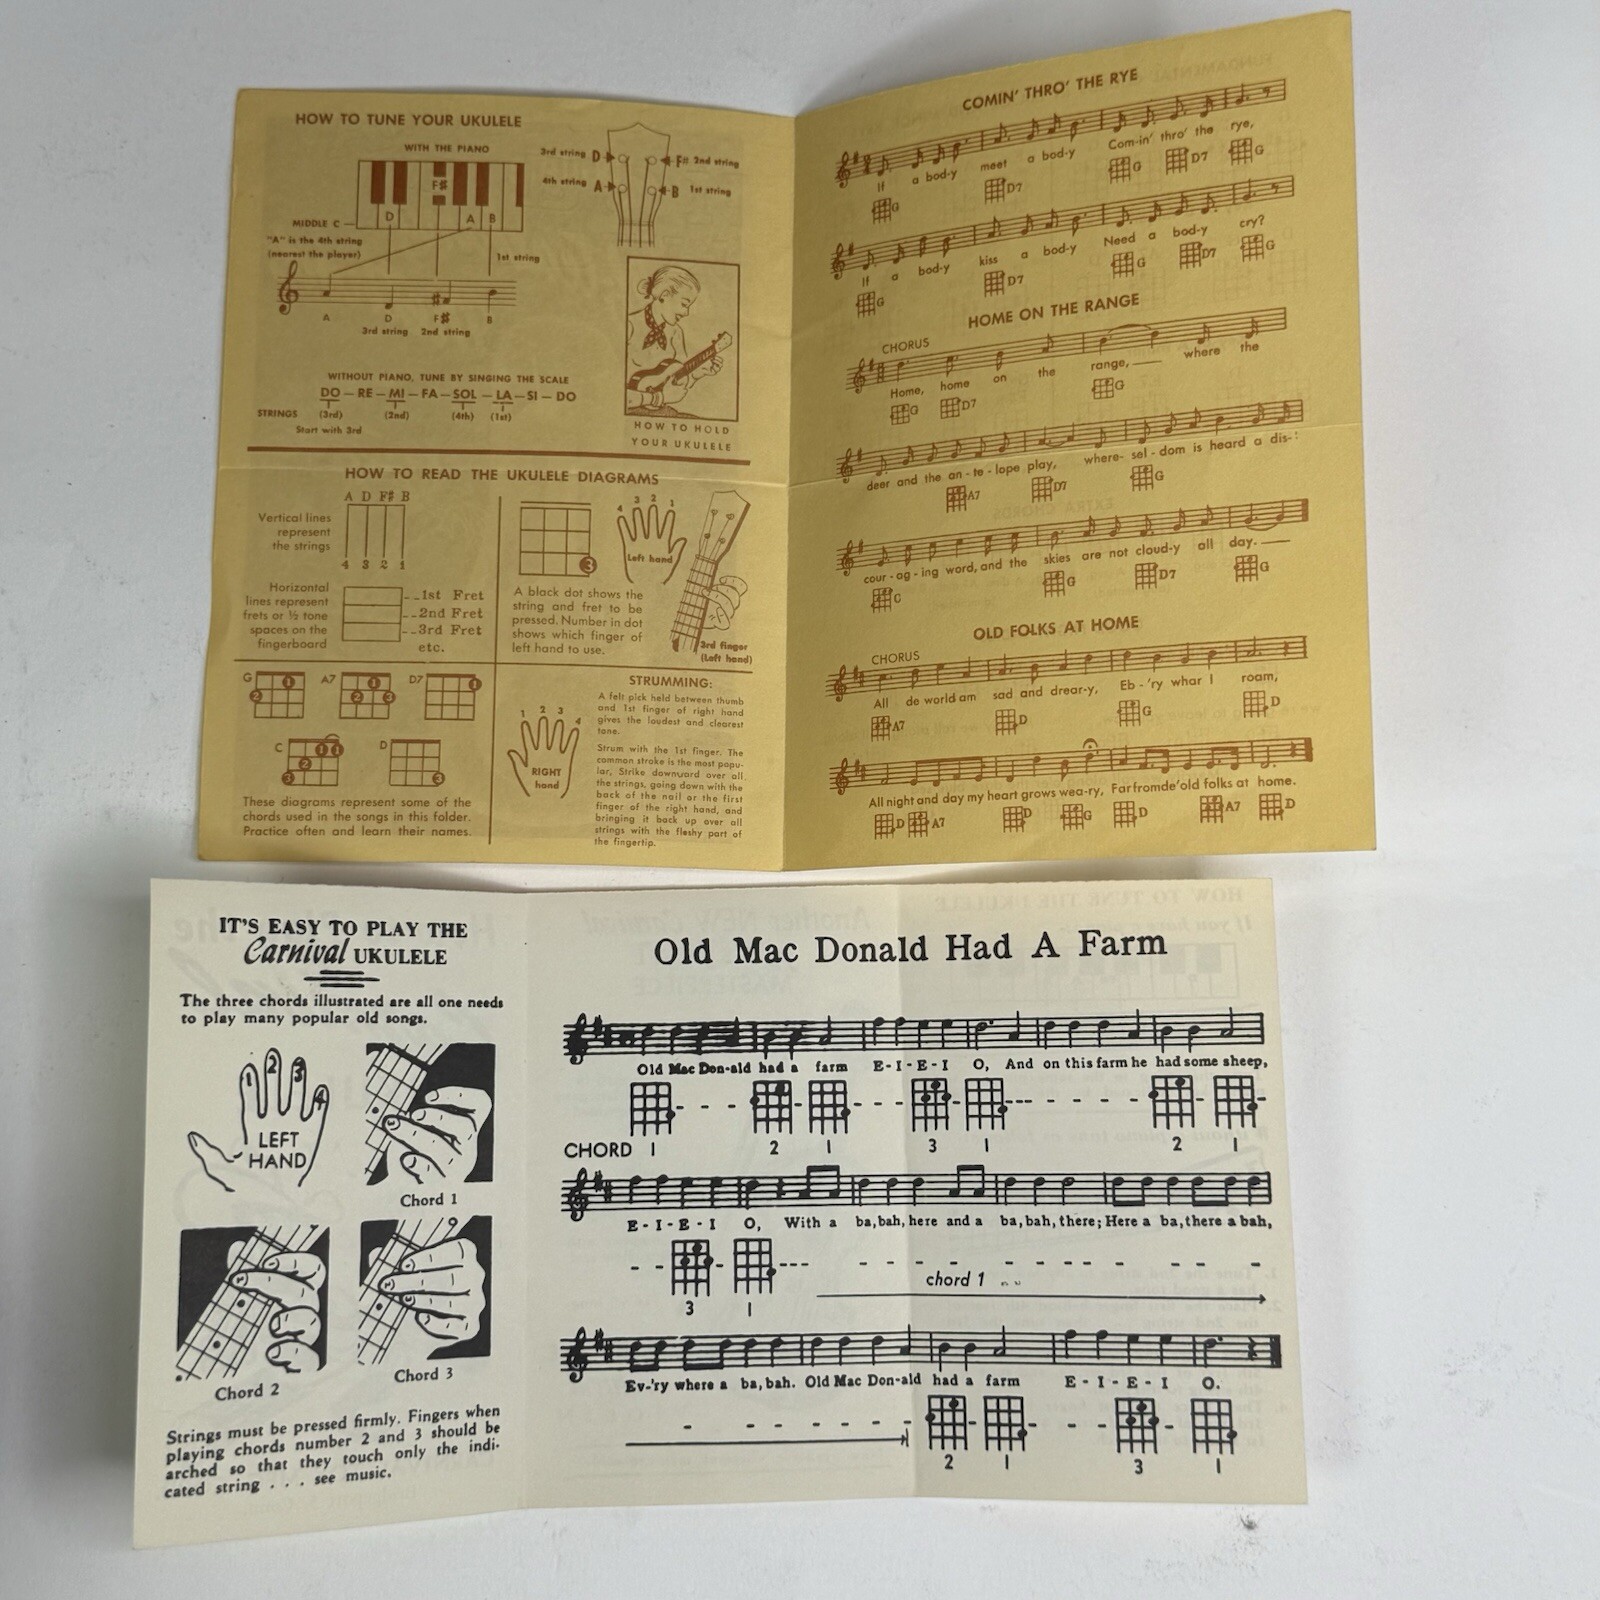 HOW TO TUNE YOUR UKULELE
WITH THE PIANO
F#
D A B
MIDDLE C
"A" is the 4th string
(nearest the player)
1st string
A D F# B
3rd string 2nd string
3rd string D F# 2nd string
4th string A B 1st string
HOW TO HOLD
YOUR UKULELE
WITHOUT PIANO, TUNE BY SINGING THE SCALE
DO — RE — MI — FA — SOL — LA — SI — DO
STRINGS (3rd) (2nd) (4th) (1st)
Start with 3rd
HOW TO READ THE UKULELE DIAGRAMS
A D F# B
Vertical lines
represent
the strings
4 3 2 1
Horizontal
lines represent
frets or ½ tone
spaces on the
fingerboard
1st Fret
2nd Fret
3rd Fret
etc.
3
4 3 2 1
Left hand
A black dot shows the
string and fret to be
pressed. Number in dot
shows which finger of
left hand to use.
3rd finger
(Left hand)
G 1 2
A7 1 2 3
D7 1
C 1 1 2 3
D 3
These diagrams represent some of the
chords used in the songs in this folder.
Practice often and learn their names.
1 2 3 4
RIGHT
hand
STRUMMING:
A felt pick held between thumb
and 1st finger of right hand
gives the loudest and clearest
tone.
Strum with the 1st finger. The
common stroke is the most popu-
lar. Strike downward over all
the strings, going down with the
back of the nail or the first
finger of the right hand, and
bringing it back up over all
strings with the fleshy part of
the fingertip.
COMIN' THRO' THE RYE
If a bod-y meet a bod-y Com-in' thro' the rye,
G D7 G D7 G
If a bod-y kiss a bod-y Need a bod-y cry?
G D7 G D7 G
HOME ON THE RANGE
CHORUS
Home, home on the range, where the
G D7 G
deer and the an - te - lope play, where- sel - dom is heard a dis-:
A7 D7 G
cour - ag - ing word, and the skies are not cloud-y all day.
C G D7 G
OLD FOLKS AT HOME
CHORUS
All de world am sad and drear-y, Eb - 'ry whar I roam,
A7 D G D
All night and day my heart grows wea-ry, Far from de' old folks at home.
D A7 D G D A7 D
IT'S EASY TO PLAY THE
Carnival UKULELE
The three chords illustrated are all one needs
to play many popular old songs.
1 2 3 4
LEFT
HAND
Chord 1
Chord 2
Chord 3
Strings must be pressed firmly. Fingers when
playing chords number 2 and 3 should be
arched so that they touch only the indi-
cated string . . . see music.
Old Mac Donald Had A Farm
Old Mac Don-ald had a farm E - I - E - I O, And on this farm he had some sheep,
CHORD 1 2 1 3 1 2 1
E - I - E - I O, With a ba, bah, here and a ba, bah, there; Here a ba, there a bah,
3 1
chord 1
Ev-'ry where a ba, bah. Old Mac Don-ald had a farm E - I - E - I O.
2 1 3 1